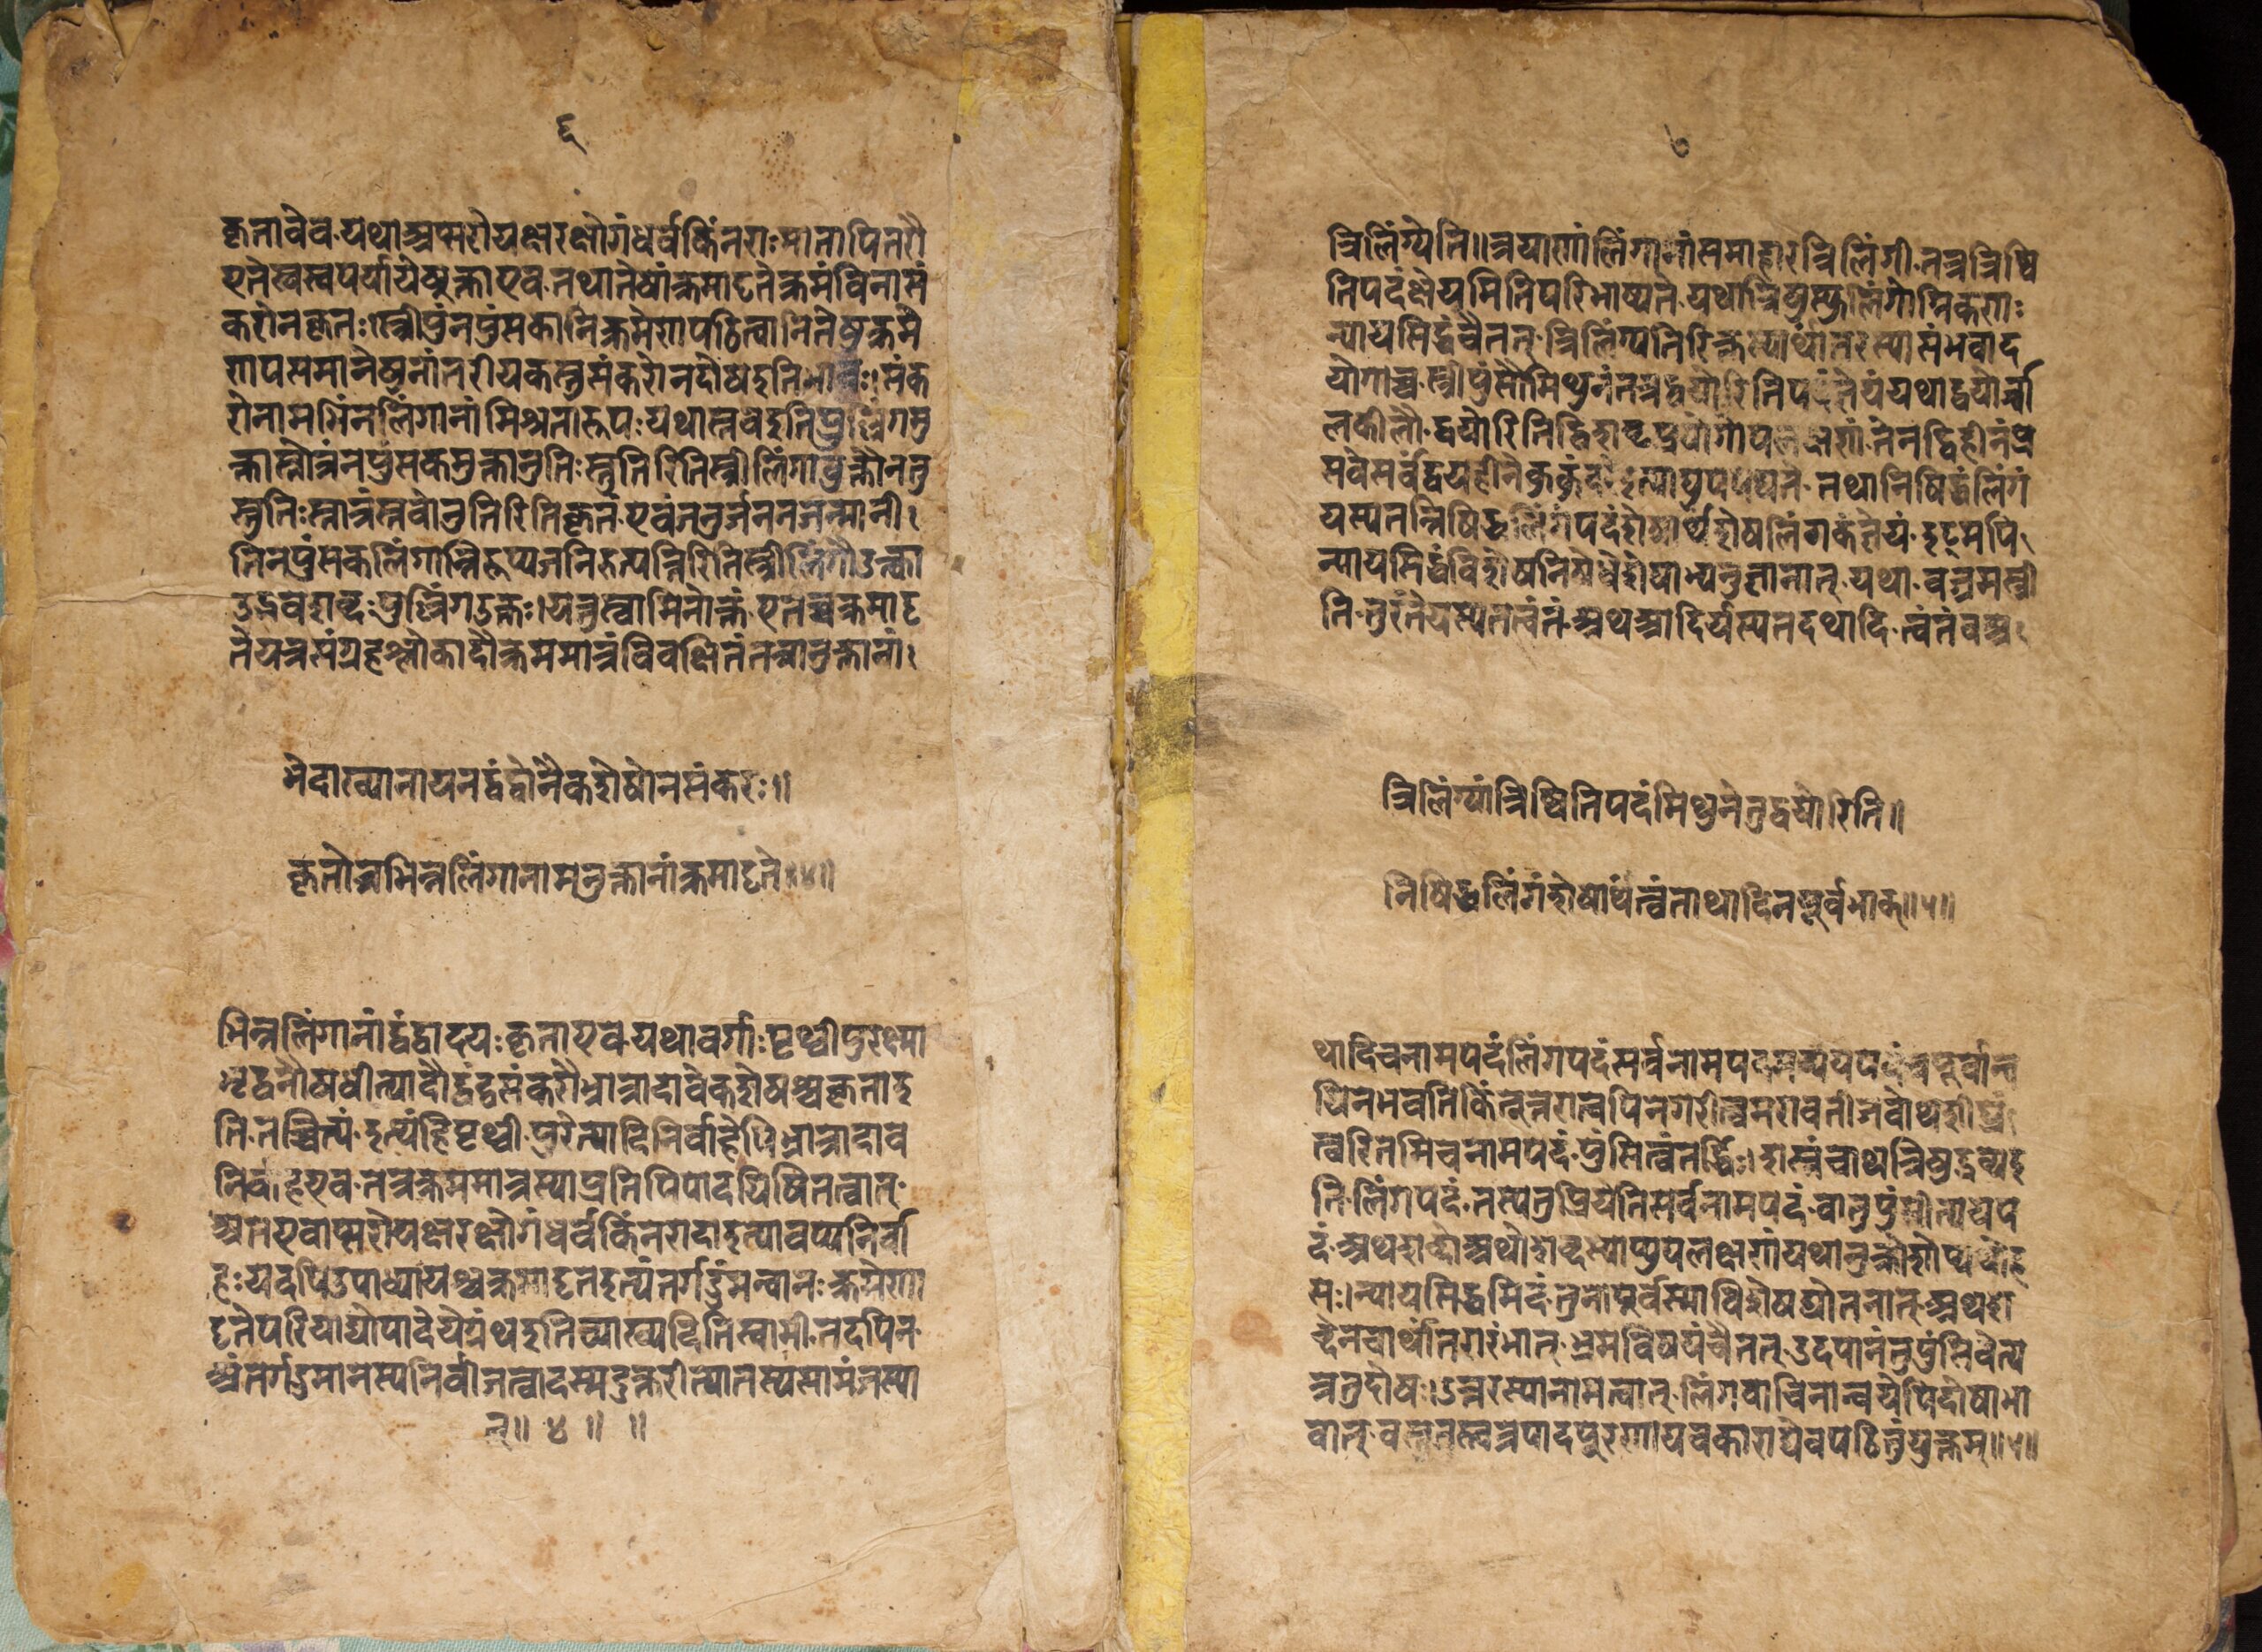 ६
कृतावेव यथा अप्सरोयक्षरक्षोगंधर्वकिंनराः मातापितरौ
एते स्वस्वपर्यायेषूक्ता एव तथा तेषां क्रमादृते क्रमं विना सं
करो न कृतः। स्त्रीपुंनपुंसकानि क्रमेण पठित्वानि तेषु क्रमे
ण पसमानेषु नांतरीयकस्तु संकरो न दोष इति भावः। संक
रो नाम भिंनलिंगानां मिश्रतारूपः यथा स्तव इति पुल्लिंगमु
क्ता स्तोत्रं नपुंसकमुक्ता नुतिः स्तुतिरिति स्त्रीलिंगावुक्तौ न तु
स्तुतिः स्तोत्रं स्तवो नुतिरिति कृतं एवं जनुर्जननजन्मानी
ति नपुंसकलिंगान्निरूप्य जनिरुत्पत्तिरिति स्त्रीलिंगौ उक्त्वा
उद्भवशब्दः पुल्लिंग उक्तः। यत्तु स्वामिनोक्तं एतच्च क्रमादृ
ते यत्र संग्रहश्लोकादौ क्रममात्रं विवक्षितं तत्रानुक्तानां
भेदाख्यानाय न द्वंद्वो नैकशेषो न संकरः॥
कृतोत्र भिन्नलिंगानामनुक्तानां क्रमादृते॥४॥
भिन्नलिंगानां द्वंद्वादयः कृता एव यथा वर्गाः पृथ्वीपुरक्ष्मा
भृद्वनौषधीत्यादौ द्वंद्वसंकरौ भ्रात्रादावेकशेषश्च कृत इ
ति तच्चिंत्यं इत्थं हि पृथ्वी पुरेत्यादिनिर्वाहेपि भ्रात्रादाव
निर्वाह एव तत्र क्रममात्रस्याप्रतिपिपादयिषितत्वात्
अत एवाप्सरोयक्षरक्षोगंधर्वकिंनरादा इत्यावप्यनिर्वा
हः यदपि उपाध्यायश्च क्रमादृत इत्यंतर्गडुं मन्वानः क्रमेणा
दृते परियाद्योपादेये ग्रंथ इति व्याख्यदिति स्वामी तदपि न
अंतर्गडुमानस्य निर्बीजत्वादस्मदुक्तरीत्या तस्य सामंजस्या
त्॥ ४ ॥ ॥
७
त्रिलिंग्येति॥ त्रयाणां लिंगानां समाहारस्त्रिलिंगी तत्र त्रिष्वि
ति पदं ज्ञेयमिति परिभाष्यते यथा त्रिषु स्फुलिंगोग्निकणः
न्यायसिद्धं चैतत् त्रिलिंग्यतिरिक्तस्यार्थांतरस्यासंभवाद
योगाच्च स्त्रीपुंसौ मिथुनं तत्र द्वयोरिति पदं ज्ञेयं यथा द्वयोर्ज्वा
लकीलौ द्वयोरिति द्विशब्दप्रयोगोपलक्षणं तेन द्विहीनं प्र
सवे सर्वं द्वयहीने कुकुंदरे इत्याद्युपपद्यते तथा निषिद्धं लिंगं
यस्य तन्निषिद्धलिंगं पदं शेषार्थं शेषलिंगकं ज्ञेयं इदमपि
न्यायसिद्धं विशेषनिषेधे शेषाभ्यनुज्ञानात् यथा वज्रमस्त्री
ति तुरंते यस्य तत्त्वंतं अथ आदिर्यस्य तदथादि त्वंतं च अ
त्रिलिंग्यां त्रिष्विति पदं मिथुने तु द्वयोरिति॥
निषिद्धलिंगं शेषार्थं त्वंताथादि न पूर्वभाक्॥५॥
थादि च नामपदं लिंगपदं सर्वनामपदमव्ययपदं च पूर्वान्व
यि न भवति किंतूत्तरान्वयि नगरी त्वमरावती जवोथ शीघ्रं
त्वरितमिच नामपदं पुंसि त्वंतर्द्धिः। शस्त्रं चाथ त्रिषु द्रव्ये इ
ति लिंगपदं तस्य तु प्रियेति सर्वनामपदं वा तु पुंसीत्यव्ययप
दं अथ शब्दो अथो शब्दस्याप्युपलक्षणं यथानुक्रोशोप्यथो ह
सः। न्यायसिद्धमिदं तुना पूर्वस्माद्विशेषद्योतनात् अथ श
ब्देन चार्थांतरारंभात् भ्रमविषयं चैतत् उदपानं तु पुंसि वेत्य
त्र तु दोषः। उत्तरस्यानामत्वात् लिंगवाचिनान्वयेपि दोषाभा
वात् वस्तुतस्त्वत्र पादपूरणाय चकार एव पठितुं युक्तम्॥५॥